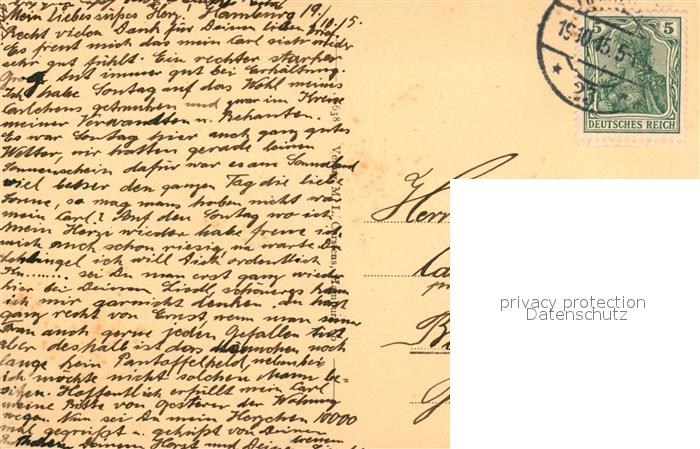 Mein liebes süßes Herz. Hamburg 19/10.15.
Recht vielen Dank für Deinen lieben Brief
Es freut mich das mein Carl sich wieder
sehr gut fühlt. Ein rechter starker
tut immer gut bei Erkältung.
Ich habe Sontag auf das Wohl meines
Carlchens getrunken und zwar im Kreise
meiner Verwandten u. Bekanten.
Es war Sontag hier auch ganz gutes
Wetter, wir hatten gerade keinen
Sonnenschein dafür war es am Sonnabend
viel besser den ganzen Tag die liebe
Sonne, so mag mans haben nicht wahr
mein Carl? Auf den Sontag wo ich
Mein Herzi wieder habe freue ich
mich auch schon riesig, na warte Du
Schlingel ich will Dich ordentlich
Kü....... sei Du man erst ganz wieder
hier bei Deinem Liedl, schöneres kann
ich mir garnicht denken. Du hast
ganz recht von Ernst wenn man seiner
Frau auch gerne jeden Gefallen tut
aber deshalb ist das noch
lange kein Pantoffelheld, nebenbei
ich möchte nicht solchen Mann be-
sitzen. Hoffentlich erfüllt mein Carl
meine Bitte von gestern der Wohnung
wegen. Nun sei Du mein Herzchen 10000
mal gegrüßt u. geküßt von Deinem
treuen
Deinem Horst und Deine
Verlag M. L. Carstens, Hamburg
Herrn
5 5
DEUTSCHES REICH
19.10.15.5-
* 23 *
privacy protection
Datenschutz